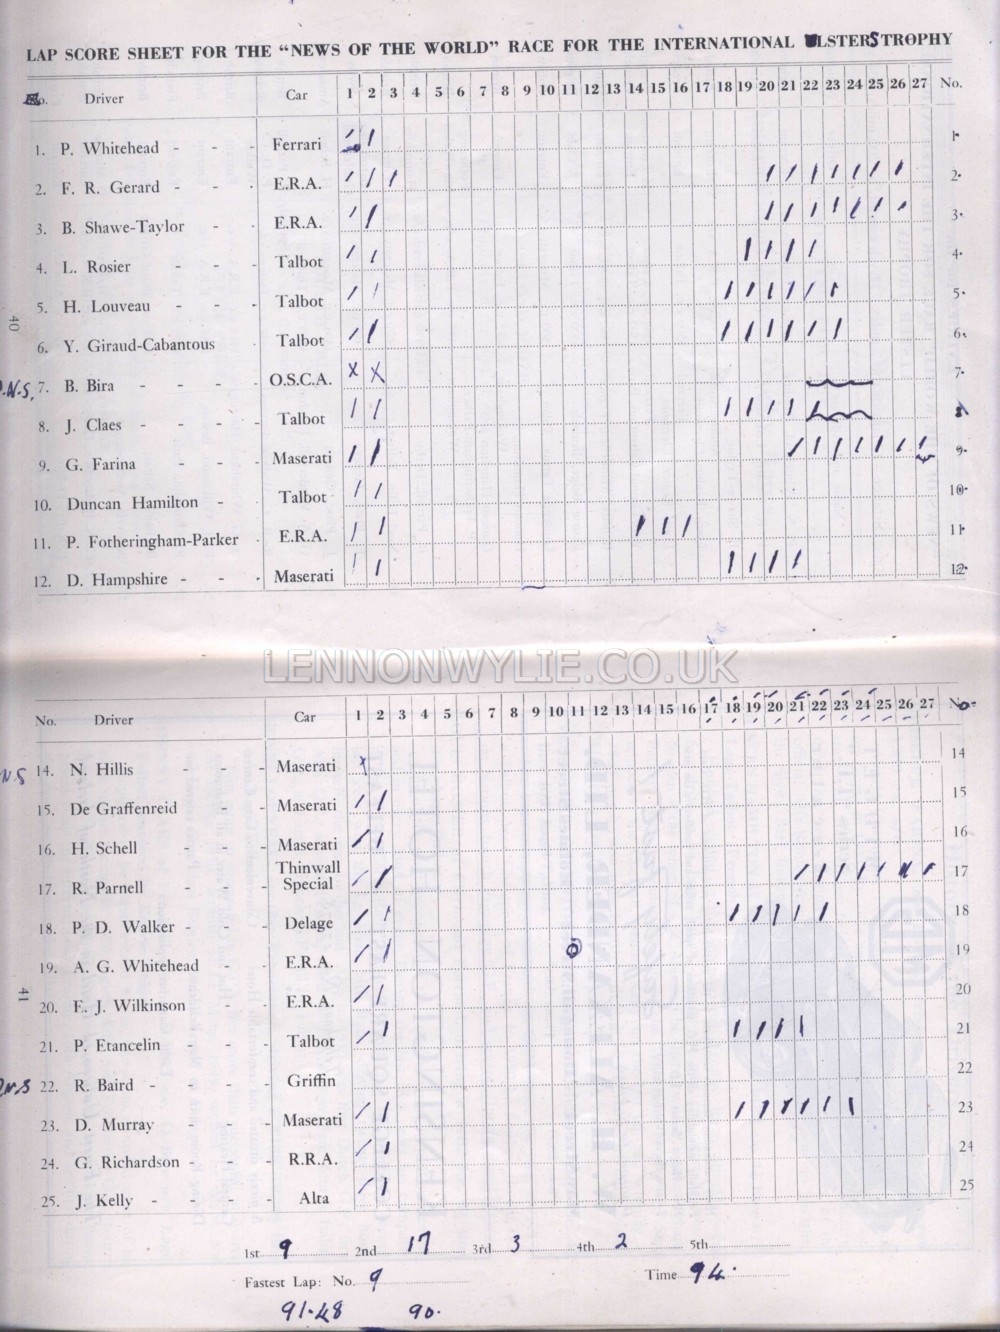 LAP SCORE SHEET FOR THE “NEWS OF THE WORLD” RACE FOR THE INTERNATIONAL ULSTER TROPHY
No. Driver Car 1 2 3 4 5 6 7 8 9 10 11 12 13 14 15 16 17 18 19 20 21 22 23 24 25 26 27 No.
1. P. Whitehead - - - Ferrari 1.
2. F. R. Gerard - - - E.R.A. 2.
3. B. Shawe-Taylor - - E.R.A. 3.
4. L. Rosier - - - Talbot 4.
5. H. Louveau - - - Talbot 5.
6. Y. Giraud-Cabantous - Talbot 6.
D.N.S. 7. B. Bira - - - - O.S.C.A. X X 7.
8. J. Claes - - - - Talbot 8
9. G. Farina - - - Maserati 9.
10. Duncan Hamilton - - Talbot 10.
11. P. Fotheringham-Parker - E.R.A. 11.
12. D. Hampshire - - - Maserati 12.
LENNONWYLIE.CO.UK
No. Driver Car 1 2 3 4 5 6 7 8 9 10 11 12 13 14 15 16 17 18 19 20 21 22 23 24 25 26 27 No.
NS 14. N. Hillis - - - Maserati X 14
15. De Graffenreid - - Maserati 15
16. H. Schell - - - Maserati 16
17. R. Parnell - - - Thinwall Special 17
18. P. D. Walker - - - Delage 18
19. A. G. Whitehead - - E.R.A. 19
20. E. J. Wilkinson - - E.R.A. 20
21. P. Etancelin - - - Talbot 21
D.N.S 22. R. Baird - - - - Griffin 22
23. D. Murray - - - Maserati 23
24. G. Richardson - - - R.R.A. 24
25. J. Kelly - - - - Alta 25
1st 9 2nd 17 3rd 3 4th 2 5th
Fastest Lap: No. 9 Time 94.
91.48 90.
40
41